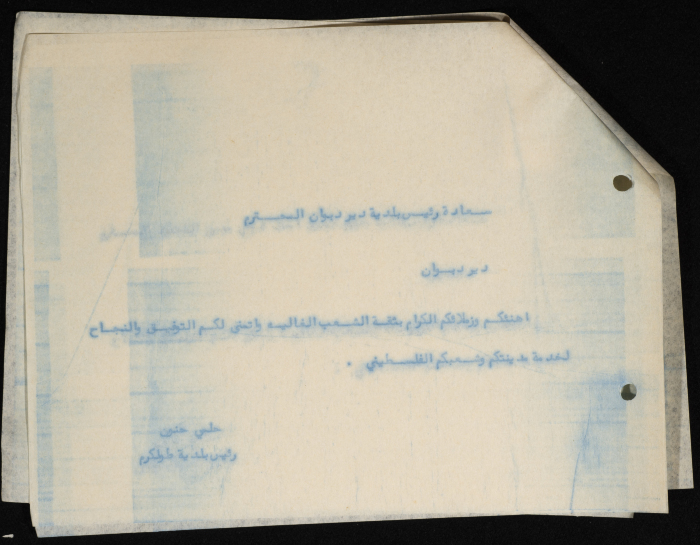 سعادة رئيس بلدية دير ديوان المحترم
دير ديوان
اهنئكم وزملائكم الكرام بثقة الشعب الغاليه واتمنى لكم التوفيق والنجاح
لخدمة مدينتكم وشعبكم الفلسطيني .
حلمي حنون
رئيس بلدية طولكرم